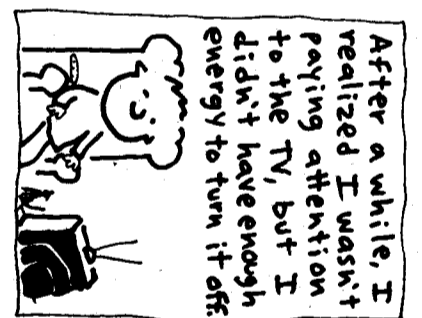 After a while, I
realized I wasn't
paying attention
to the TV, but I
didn't have enough
energy to turn it off.